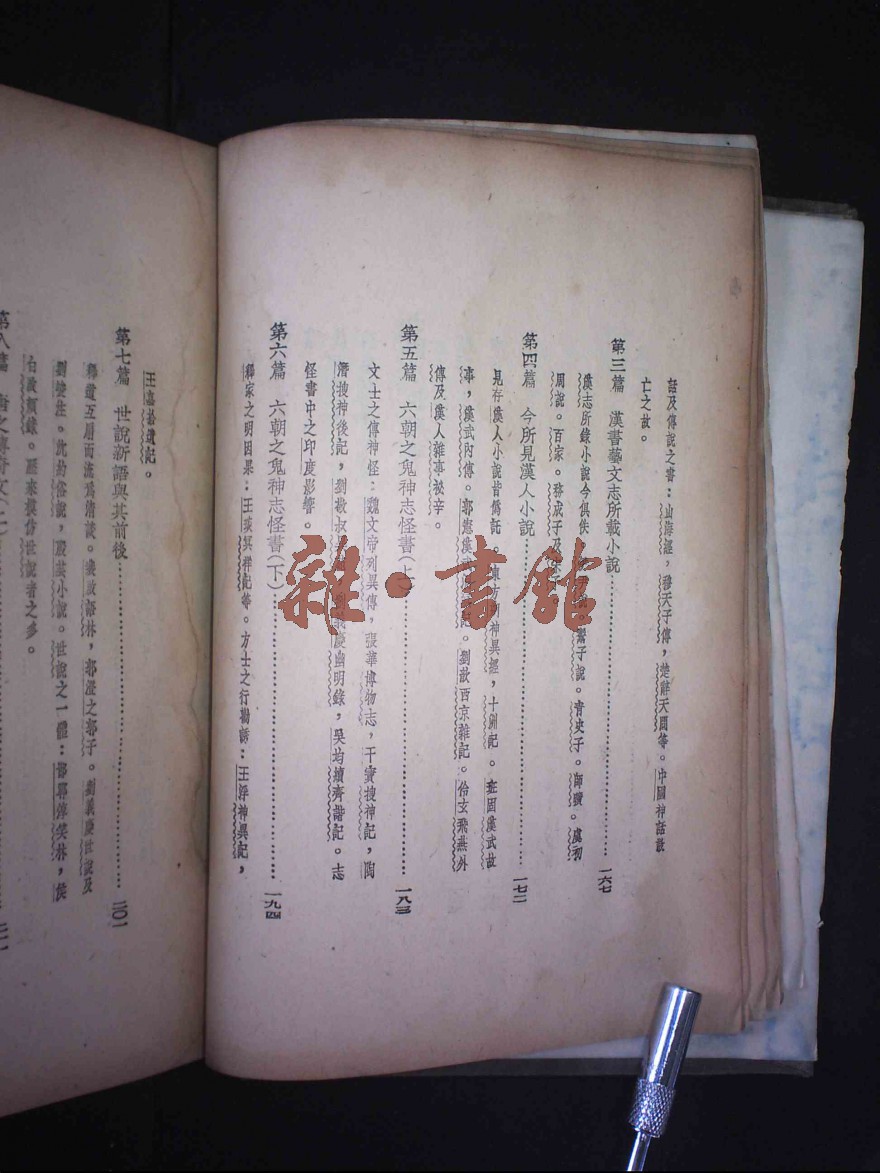 話及傳說之書：山海經，穆天子傳，楚辭天問等。中國神話散
亡之故。
第三篇 漢書藝文志所載小說 一六七
漢志所錄小說今俱佚 說。鬻子說。青史子。師曠。虞初
周說。百家。務成子及
第四篇 今所見漢人小說 一七二
見存漢人小說皆僞託。東方朔神異經，十洲記。班固漢武故
事，漢武內傳。郭憲漢武 記。劉歆西京雜記。伶玄飛燕外
傳及漢人雜事祕辛。
第五篇 六朝之鬼神志怪書（上） 一八三
文士之傳神怪：魏文帝列異傳，張華博物志，干寶搜神記，陶
潛搜神後記，劉敬叔 劉義慶幽明錄，吳均續齊諧記。志
怪書中之印度影響。
第六篇 六朝之鬼神志怪書（下） 一九四
釋家之明因果：王琰冥祥記等。方士之行勸誘：王浮神異記，
王嘉拾遺記。
第七篇 世說新語與其前後 二〇一
釋道互扇而流爲淸談。裴啟語林，郭澄之郭子。劉義慶世說及
劉 注。沈約俗說，殷芸小說。世說之一體：邯鄲淳笑林，侯
白啟顏錄。歷來模仿世說者之多。
第八篇 唐之傳奇文（上） 二一一
雜·書館